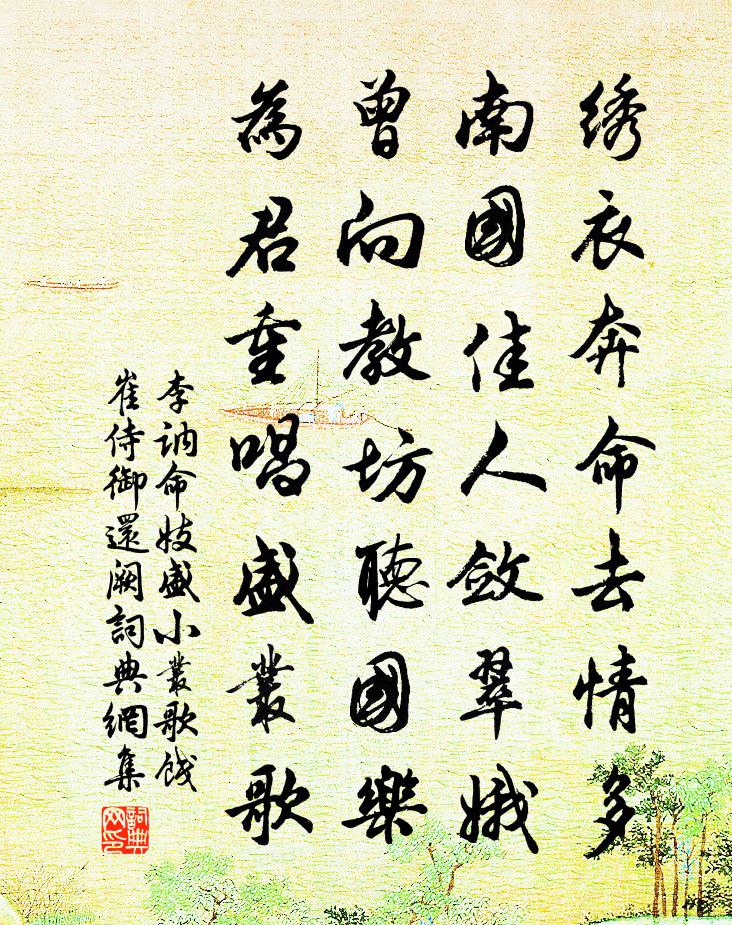 绣衣奔命去情多
南國佳人敛翠娥
曾向教坊聽國樂
為君重唱盛叢歌
李讷命妓盛小叢歌餞
崔侍御還阙詞典網集
詞典网印